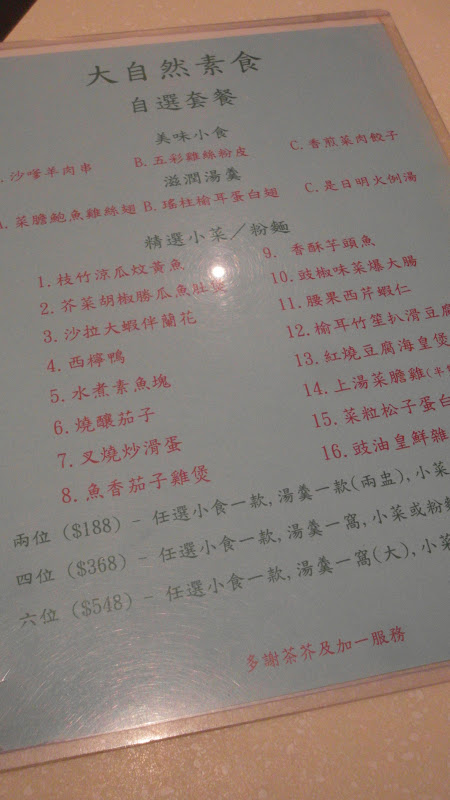 大自然素食
自選套餐
美味小食
. 沙嗲羊肉串 B. 五彩雞絲粉皮 C. 香煎菜肉餃子
滋潤湯羹
A. 菜膽鮑魚雞絲翅 B. 瑤柱榆耳蛋白翅 C. 是日明火例湯
精選小菜／粉麵
1. 枝竹涼瓜炆黃魚
2. 芥菜胡椒勝瓜魚肚煲
3. 沙拉大蝦伴蘭花
4. 西檸鴨
5. 水煮素魚塊
6. 燒釀茄子
7. 叉燒炒滑蛋
8. 魚香茄子雞煲
9. 香酥芋頭魚
10. 豉椒味菜爆大腸
11. 腰果西芹蝦仁
12. 榆耳竹笙扒滑豆腐
13. 紅燒豆腐海皇煲
14. 上湯菜膽雞(半
15. 菜粒松子蛋白
16. 豉油皇鮮雜
兩位 ($188) - 任選小食一款, 湯羹一款(兩盅), 小菜
四位 ($368) - 任選小食一款, 湯羹一窩, 小菜或粉麵
六位 ($548) - 任選小食一款, 湯羹一窩(大), 小菜
多謝茶芥及加一服務